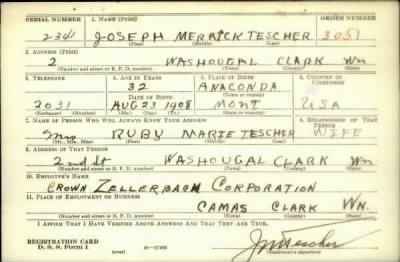 SERIAL NUMBER 1. NAME (Print) ORDER NUMBER
2341 JOSEPH MERRICK TESCHER 3051
(First) (Middle) (Last)
2. ADDRESS (Print)
2 WASHOUGAL CLARK Wn
(Number and street or R. F. D. number) (Town) (County) (State)
3. TELEPHONE 4. AGE IN YEARS 5. PLACE OF BIRTH 6. COUNTRY OF CITIZENSHIP
32 ANACONDA
DATE OF BIRTH (Town or county)
2031 AUG 23 1908 MONT USA
(Exchange) (Number) (Mo.) (Day) (Yr.) (State or country)
7. NAME OF PERSON WHO WILL ALWAYS KNOW YOUR ADDRESS 8. RELATIONSHIP OF THAT PERSON
Mrs RUBY MARIE TESCHER WIFE
(Mr., Mrs., Miss) (First) (Middle) (Last)
9. ADDRESS OF THAT PERSON
2nd St WASHOUGAL CLARK Wn
(Number and street or R. F. D. number) (Town) (County) (State)
10. EMPLOYER'S NAME
CROWN ZELLERBACH CORPORATION
11. PLACE OF EMPLOYMENT OR BUSINESS
CAMAS CLARK WN.
(Number and street or R. F. D. number) (Town) (County) (State)
I AFFIRM THAT I HAVE VERIFIED ABOVE ANSWERS AND THAT THEY ARE TRUE.
REGISTRATION CARD
D. S. S. Form 1 (over) 16—17105 JM Tescher
(Registrant's signature)